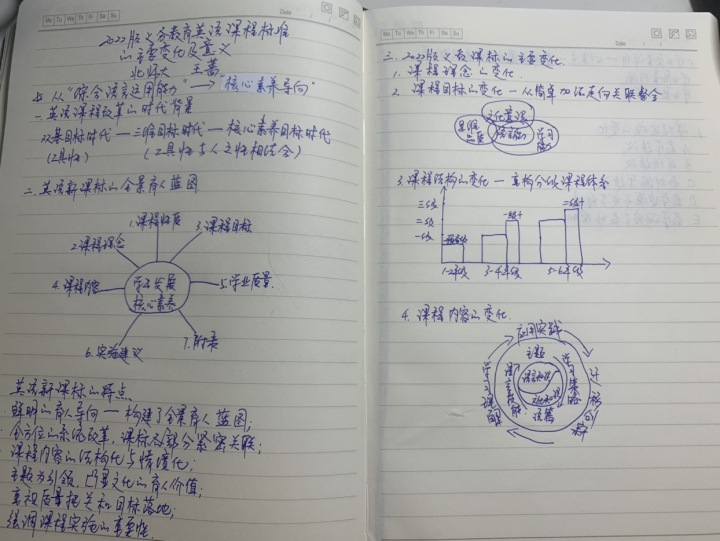 Mo Tu We Th Fr Sa Su
Date
2022版义务教育英语课程标准
的主要变化及意义
北师大 王蔷
从“综合语言运用能力”→“核心素养导向”
一、英语课程改革的时代背景
双基目标时代—三维目标时代—核心素养目标时代
(工具性)
(工具性与人文性相结合)
二、英语新课标的全景育人蓝图
1.课程性质
2.课程理念
3.课程目标
4.课程内容
学生发展
核心素养
5.学业质量
6.实施建议
7.附录
英语新课标的特点
鲜明的育人导向—构建了全景育人蓝图;
全方位的系统改革,课标各部分紧密关联;
课程内容的结构化与情境化;
主题为引领,凸显文化的育人价值;
重视质量把关和目标落地;
强调课程实施的重要性
Mo Tu We Th Fr Sa Su
Date
三、2022版义教课标的主要变化
1.课程理念的变化
2.课程目标的变化—从简单加法走向关联整合
文化意识
思维品质
语言能力
学习能力
3.课程结构的变化—重构分级课程体系
三级
二级
一级
预备级
一级+
二级+
1-2年级
3-4年级
5-6年级
4.课程内容的变化
应用实践
主题
学习理解
语言技能
语言知识
文化知识
学习策略
语篇
迁移创新